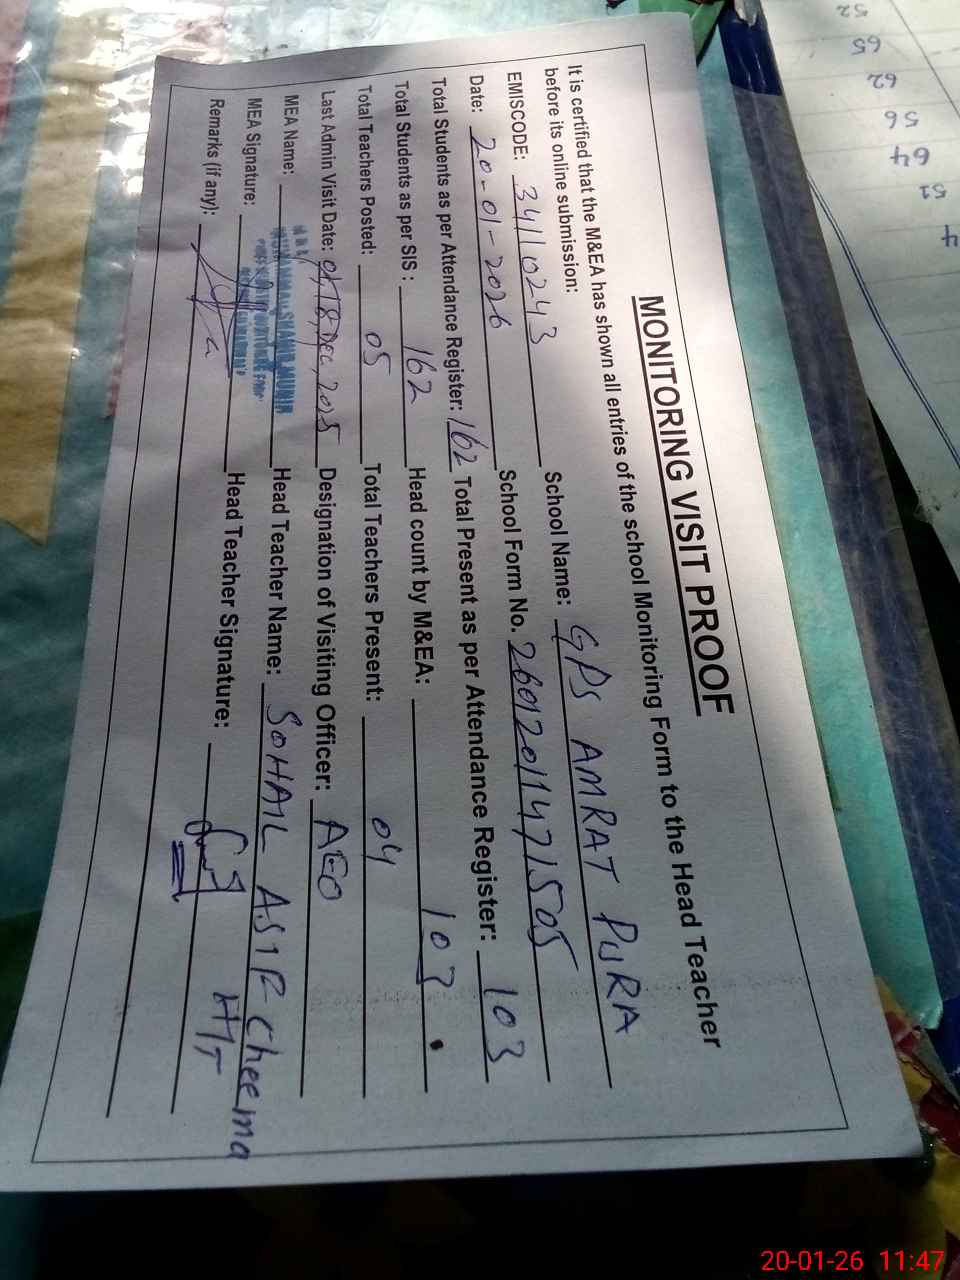 MONITORING VISIT PROOF
It is certified that the M&EA has shown all entries of the school Monitoring Form to the Head Teacher
before its online submission:
EMISCODE: 34110243 School Name: GPS AMRAT PURA
Date: 20-01-2026 School Form No. 26012011471505
Total Students as per Attendance Register: 162 Total Present as per Attendance Register: 103
Total Students as per SIS: 162 Head count by M&EA: 103
Total Teachers Posted: 05 Total Teachers Present: 04
Last Admin Visit Date: 18, Dec, 2025 Designation of Visiting Officer: AEO
MEA Name: Head Teacher Name: SOHAIL ASIR Cheema
MEA Signature: Head Teacher Signature: HT
Remarks (if any):
52
65
62
56
64
51
4
20-01-26 11:47